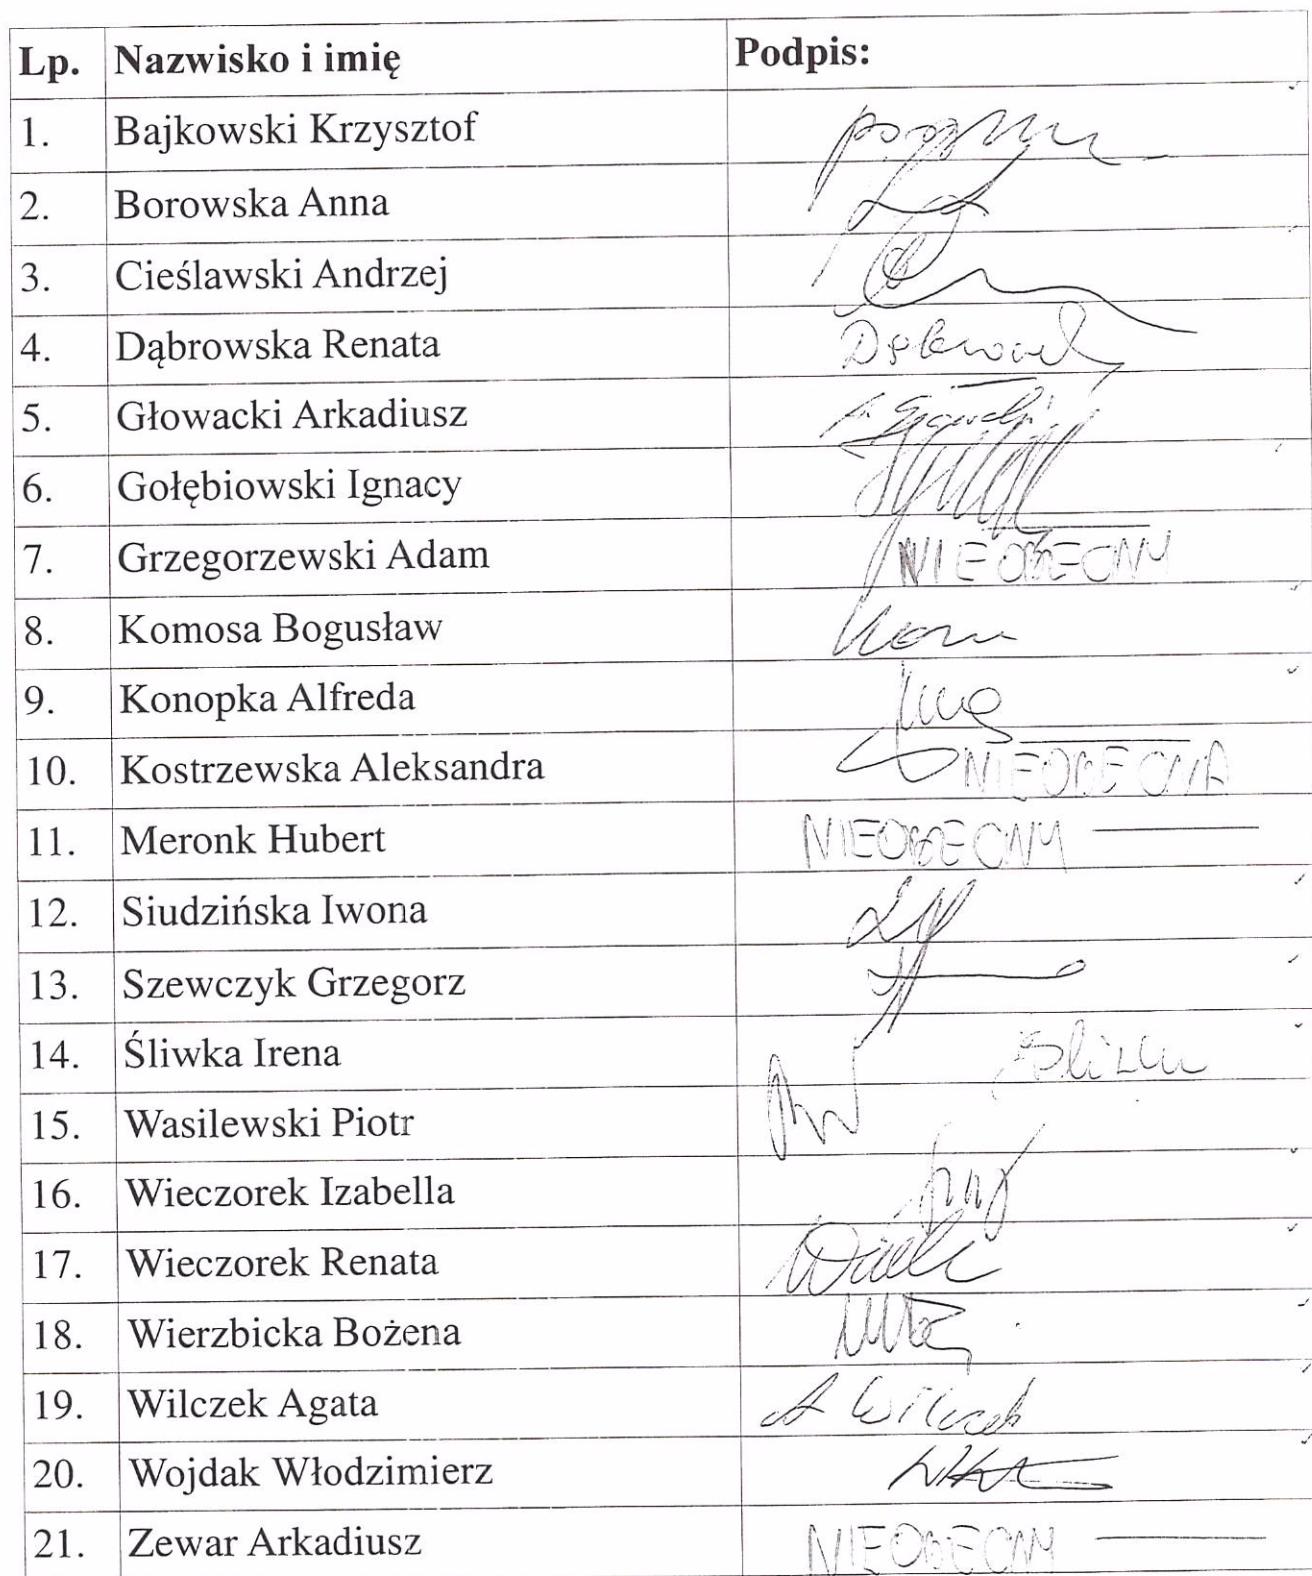 Lp. Nazwisko i imię Podpis:
1. Bajkowski Krzysztof
2. Borowska Anna
3. Cieślawski Andrzej
4. Dąbrowska Renata
5. Głowacki Arkadiusz
6. Gołębiowski Ignacy
7. Grzegorzewski Adam NIEOBECNY
8. Komosa Bogusław
9. Konopka Alfreda
10. Kostrzewska Aleksandra NIEOBECNA
11. Meronk Hubert NIEOBECNY
12. Siudzińska Iwona
13. Szewczyk Grzegorz
14. Śliwka Irena
15. Wasilewski Piotr
16. Wieczorek Izabella
17. Wieczorek Renata
18. Wierzbicka Bożena
19. Wilczek Agata A Wilczek
20. Wojdak Włodzimierz
21. Zewar Arkadiusz NIEOBECNY